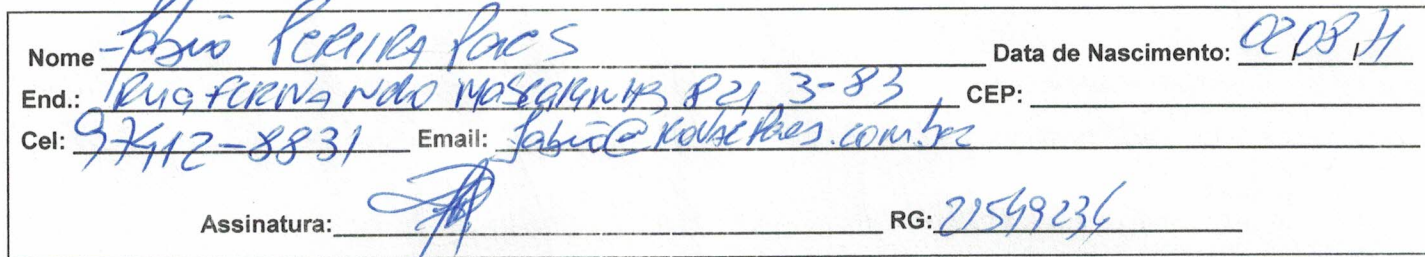 Nome Fabio Pereira Paes Data de Nascimento: 02/08/71
End.: Rua Fernando 821 3-83 CEP:
Cel: 97412-8831 Email:
Assinatura: RG: 21549234